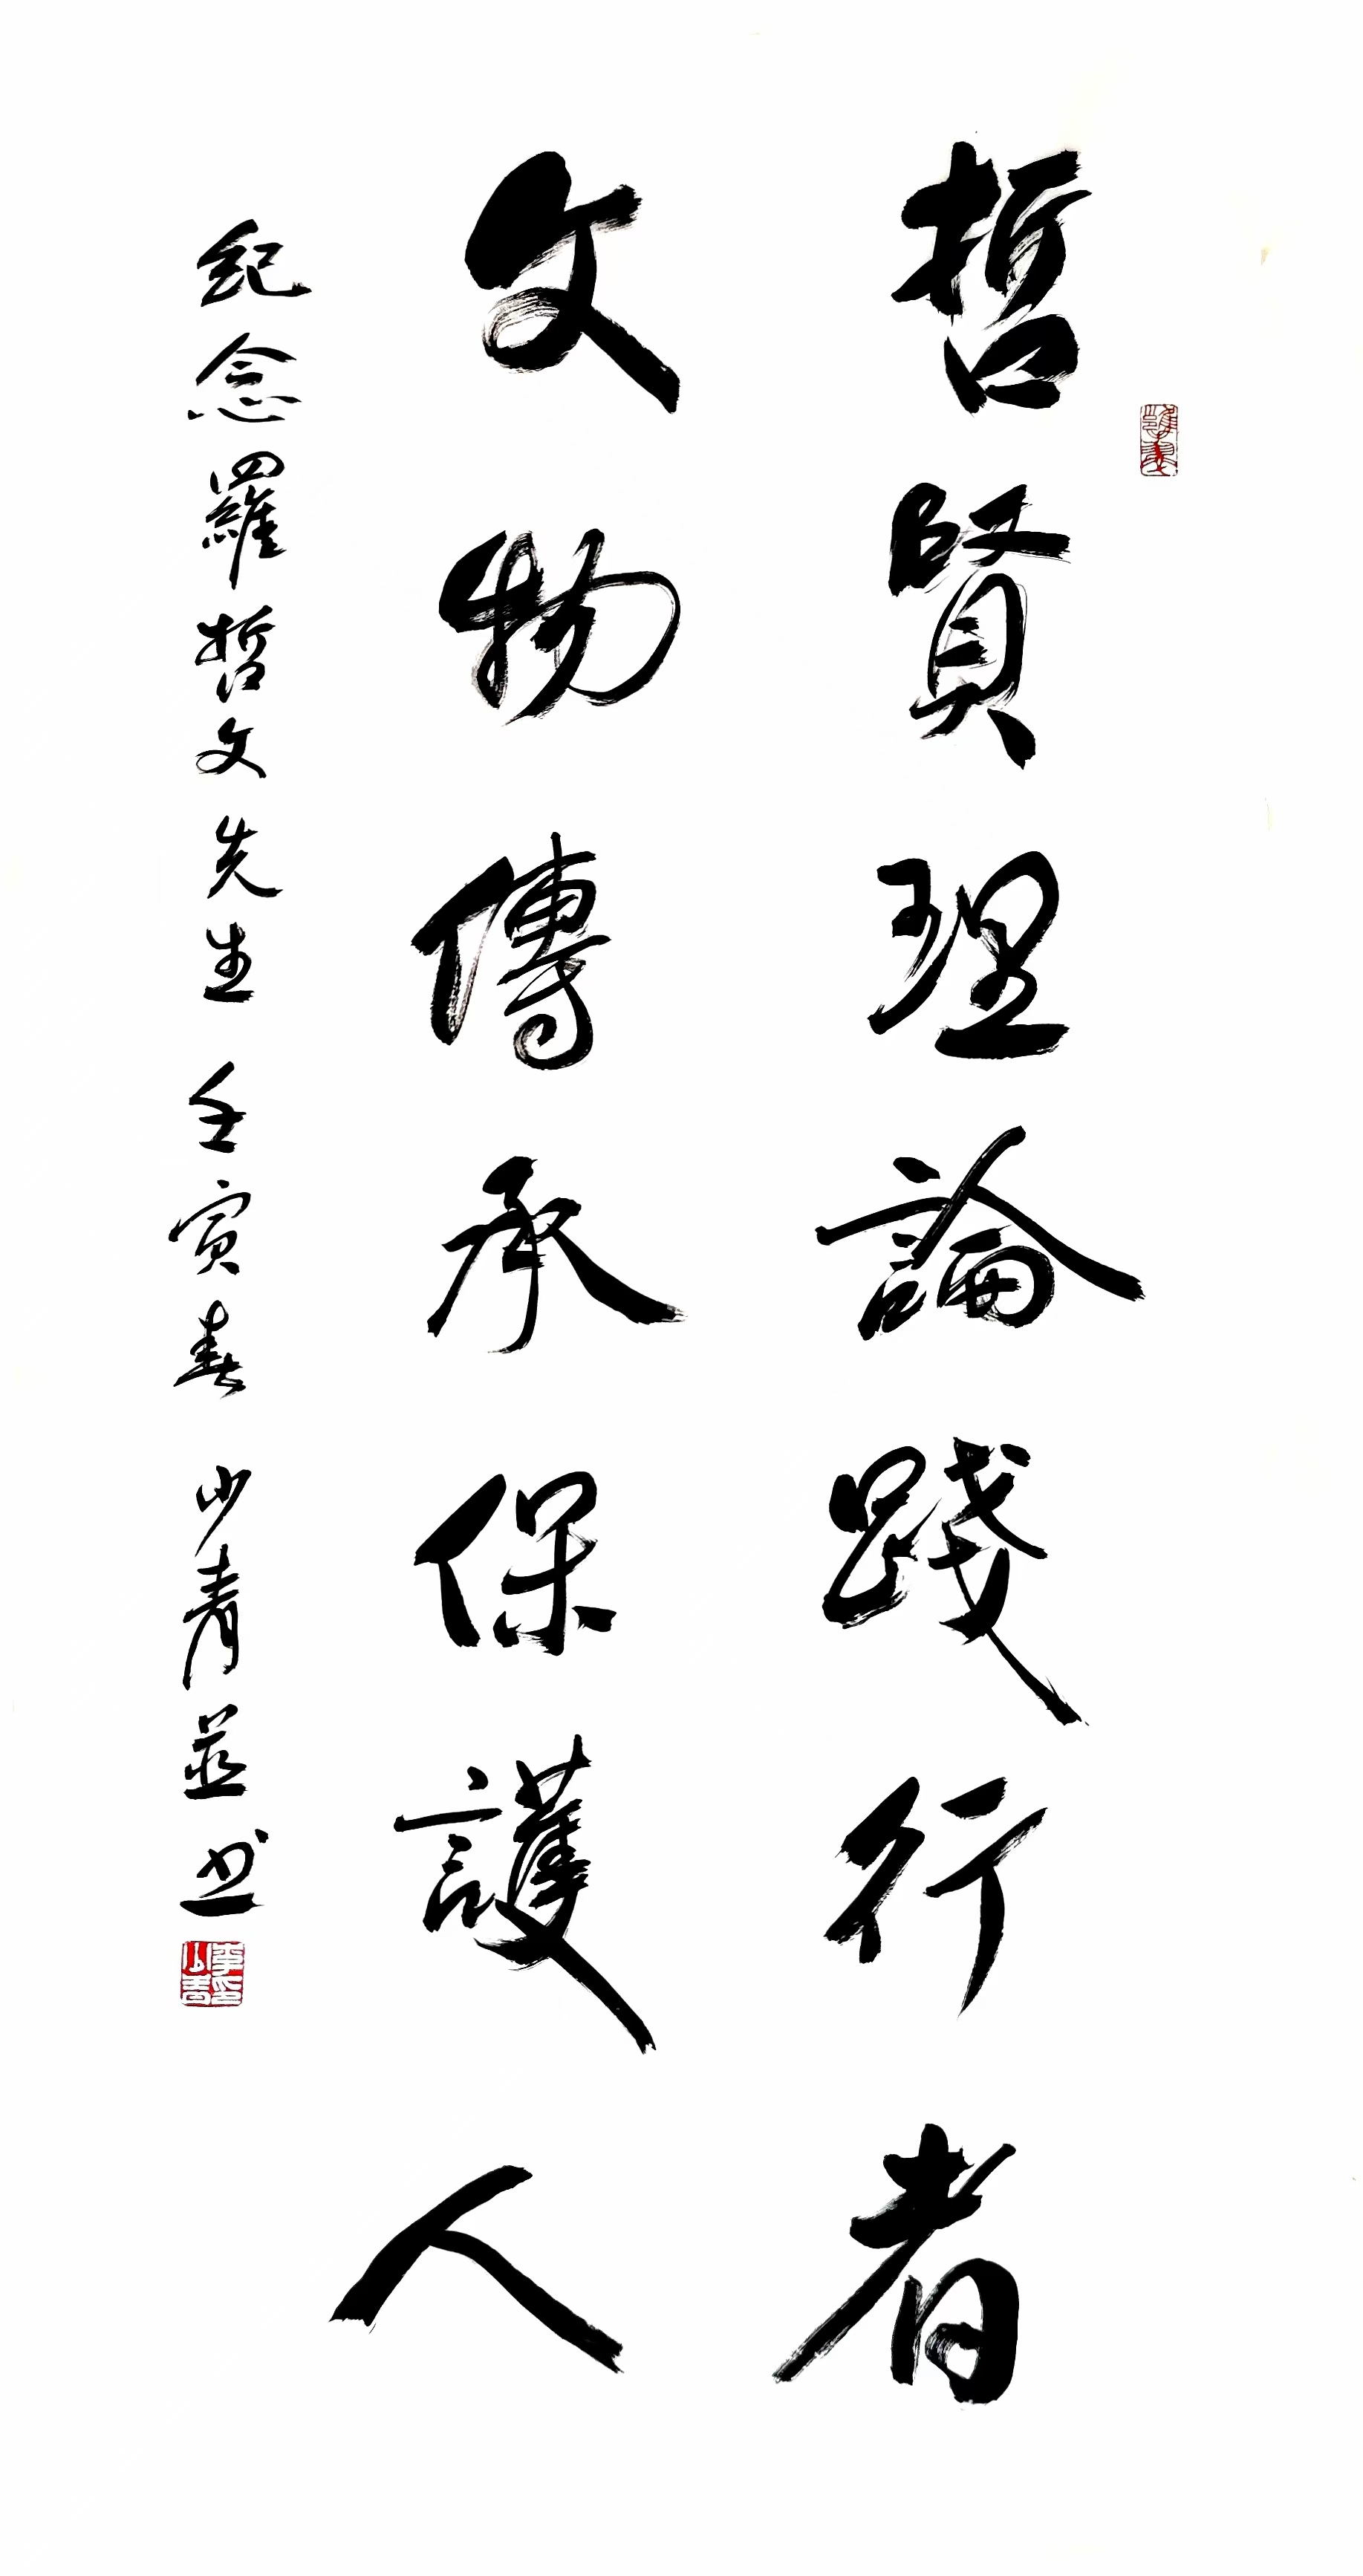 哲賢理論踐行者
文物傳承保護人
紀念羅哲文先生 壬寅春 少青並书